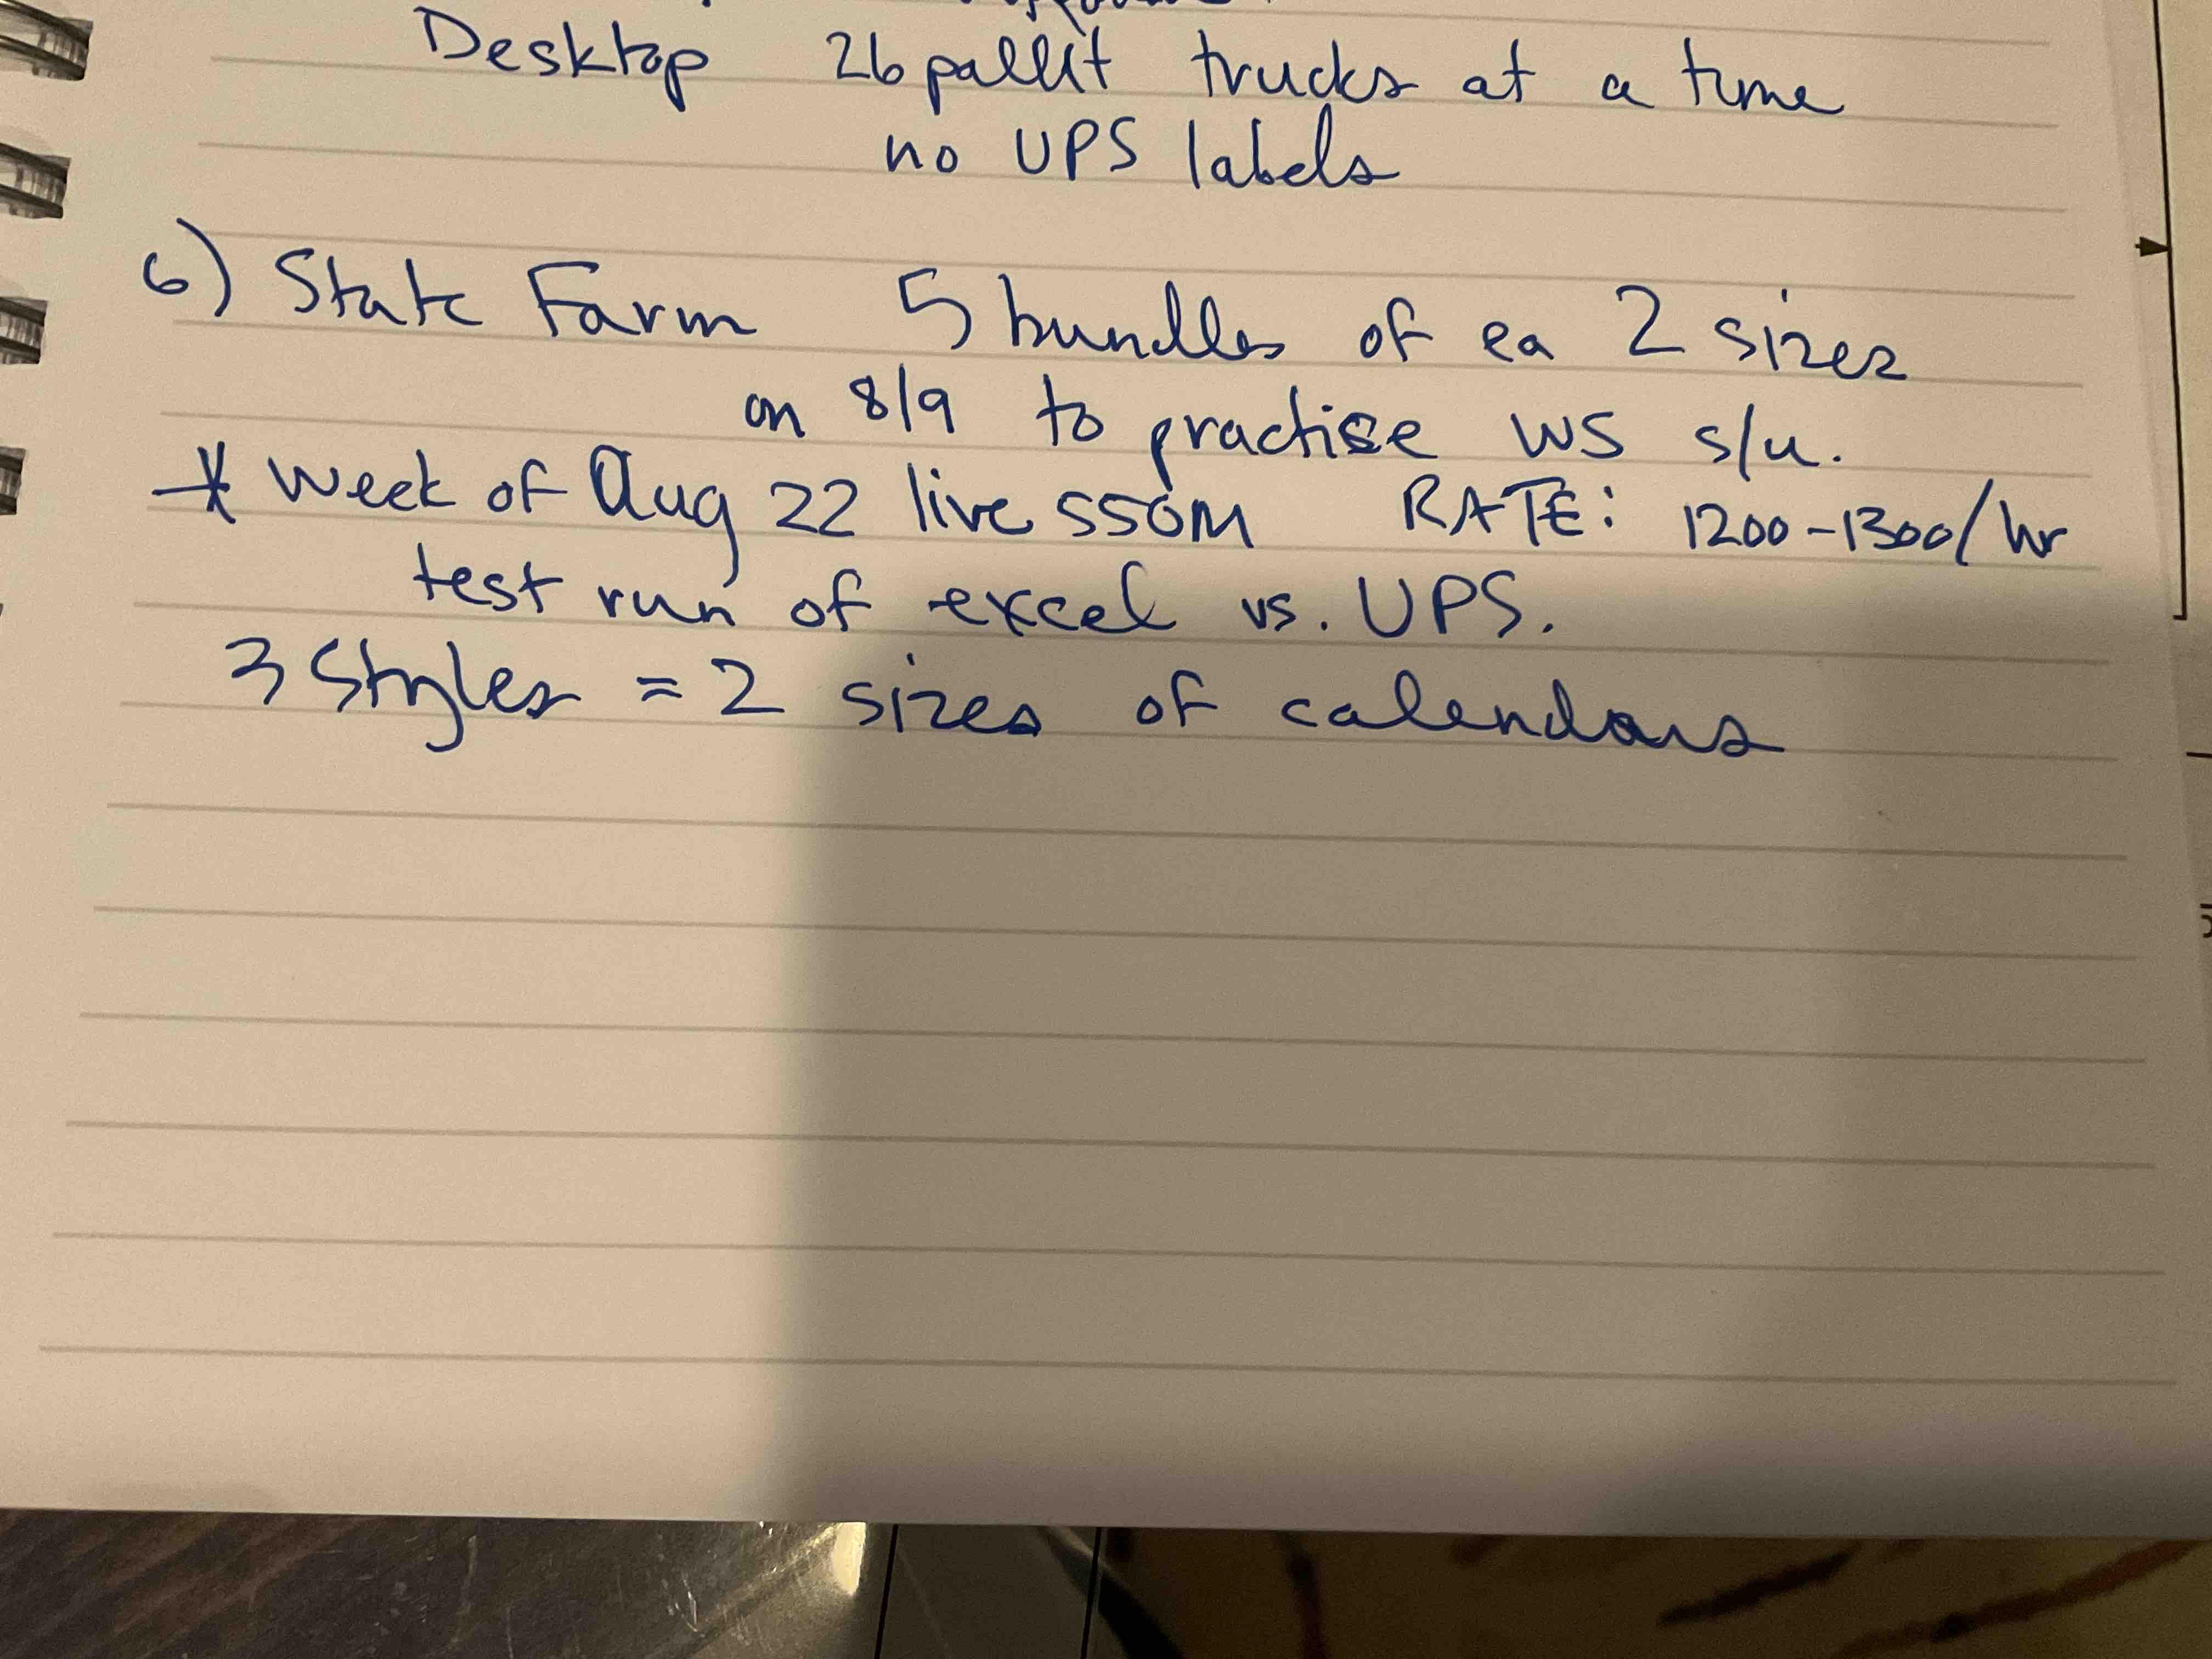 Desktop 26 pallit trucks at a time
no UPS labels
6) State Farm 5 bundles of ea 2 sizes
on 8/9 to practise WS s/u.
* Week of Aug 22 live SSOM RATE: 1200-1300/hr
test run of excel vs. UPS.
3 Styles = 2 sizes of calendars